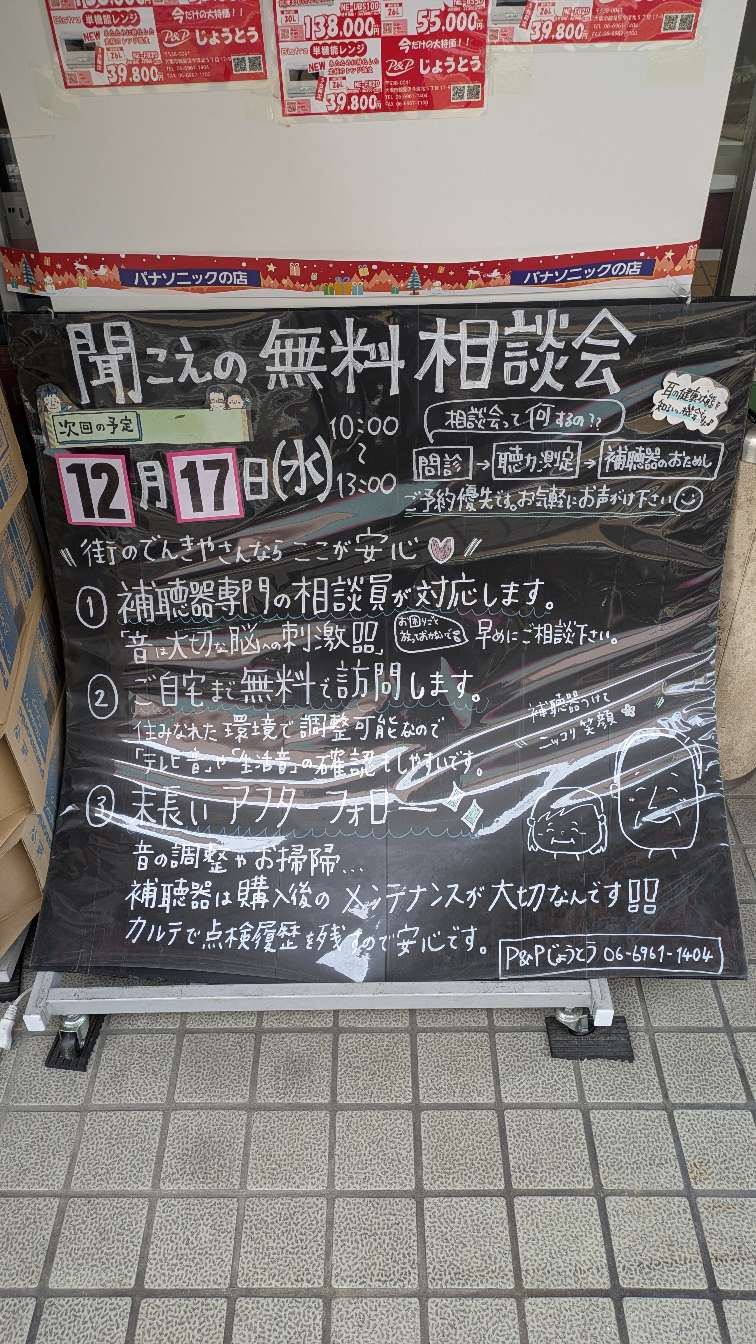 138.000円
55.000円
39.800円
Bistro 単機能レンジ
今だけの大特価！！
NEW
P&P じょうとう
39.800円
Bistro 単機能レンジ
今だけの大特価！！
NEW
P&P じょうとう
39.800円
TEL 06-6961-1404
パナソニックの店
パナソニックの店
聞こえの無料相談会
耳の健康状態を
次回の予定
10:00
〜
13:00
12月17日(水)
相談会って何するの??
問診→聴力測定→補聴器のおためし
ご予約優先です。お気軽にお声がけ下さい
街のでんきやさんならここが安心
① 補聴器専門の相談員が対応します。
「音は大切な脳への刺激器」
お困りごと
放っておかないで
早めにご相談下さい。
② ご自宅まで無料で訪問します。
住みなれた環境で調整可能なので
「テレビ音」や「生活音」の確認もしやすいです。
補聴器つけて
ニッコリ笑顔
③ 末長いアフターフォロー
音の調整やお掃除…
補聴器は購入後のメンテナンスが大切なんです!!
カルテで点検履歴を残すので安心です。
P&Pじょうとう 06-6961-1404